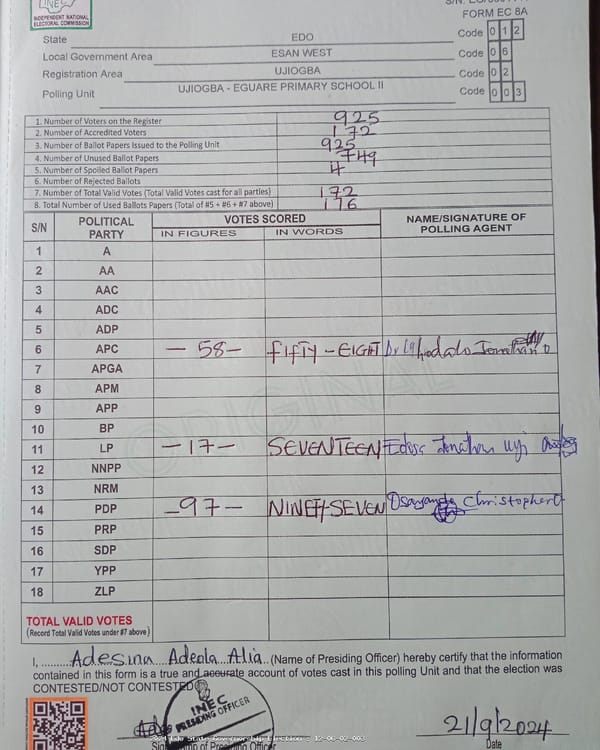 INEC
INDEPENDENT NATIONAL
ELECTORAL COMMISSION
FORM EC 8A
State EDO Code 0 1 2
Local Government Area ESAN WEST Code 0 6
Registration Area UJIOGBA Code 0 2
Polling Unit UJIOGBA - EGUARE PRIMARY SCHOOL II Code 0 0 3
1. Number of Voters on the Register 925
2. Number of Accredited Voters 172
3. Number of Ballot Papers Issued to the Polling Unit 925
4. Number of Unused Ballot Papers 749
5. Number of Spoiled Ballot Papers 4
6. Number of Rejected Ballots
7. Number of Total Valid Votes (Total Valid Votes cast for all parties) 172
8. Total Number of Used Ballots Papers (Total of #5 + #6 + #7 above) 176
S/N POLITICAL PARTY VOTES SCORED NAME/SIGNATURE OF POLLING AGENT
IN FIGURES IN WORDS
1 A
2 AA
3 AAC
4 ADC
5 ADP
6 APC - 58 - FIFTY - EIGHT
7 APGA
8 APM
9 APP
10 BP
11 LP - 17 - SEVENTEEN
12 NNPP
13 NRM
14 PDP - 97 - NINETY-SEVEN Christopher
15 PRP
16 SDP
17 YPP
18 ZLP
TOTAL VALID VOTES
(Record Total Valid Votes under #7 above)
I, Adesina Adeola Alia (Name of Presiding Officer) hereby certify that the information
contained in this form is a true and accurate account of votes cast in this polling Unit and that the election was
CONTESTED/NOT CONTESTED
INEC
PRESIDING OFFICER
21/9/2024
Signature of Presiding Officer Date